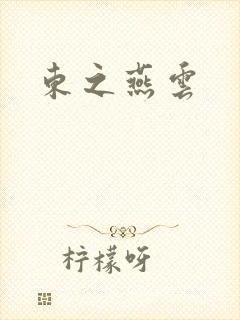 東之燕雲
柠檬呀